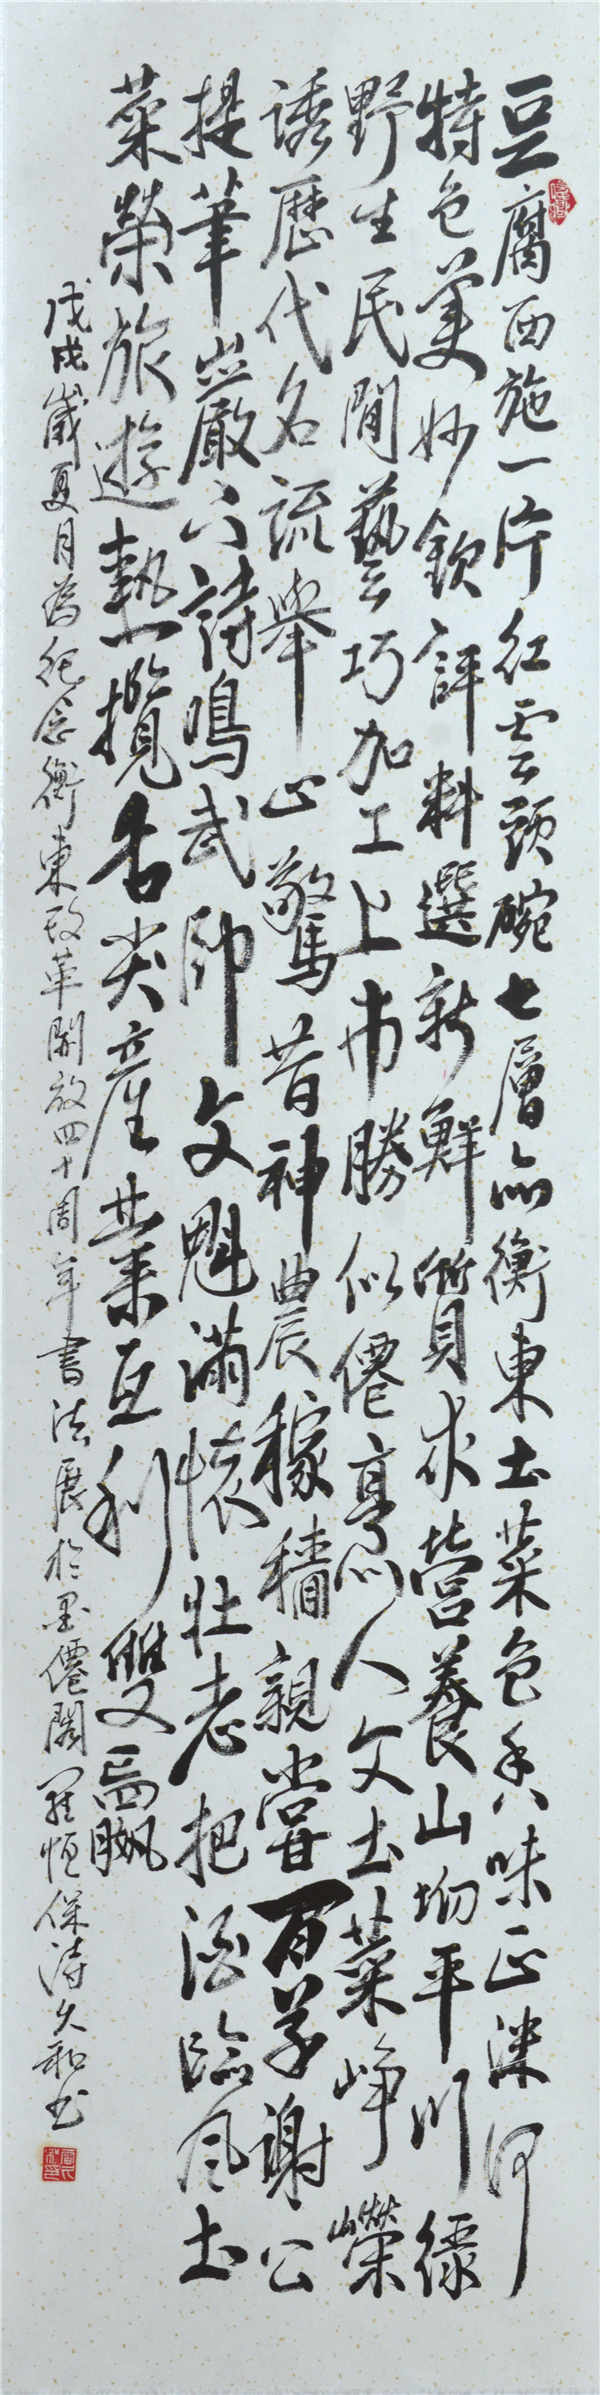 豆腐西施一片紅雲頭碗七層品衡東土菜色香味正洣河
特色美妙欽評料選新鮮質求營養山坳平川綠
野生民間藝巧加工上市勝似僊烹人文土菜崢嶸
誘歷代名流舉止驚昔神農稼穡親嘗百草謝公
提筆巖下詩鳴武帥文魁滿懷壯志把酒臨風土
菜榮旅遊熱攬舌尖產業互利雙贏
戊戌歲夏月為紀念衡東改革開放四十周年書法展於墨僊閣羅恒保詩久和書